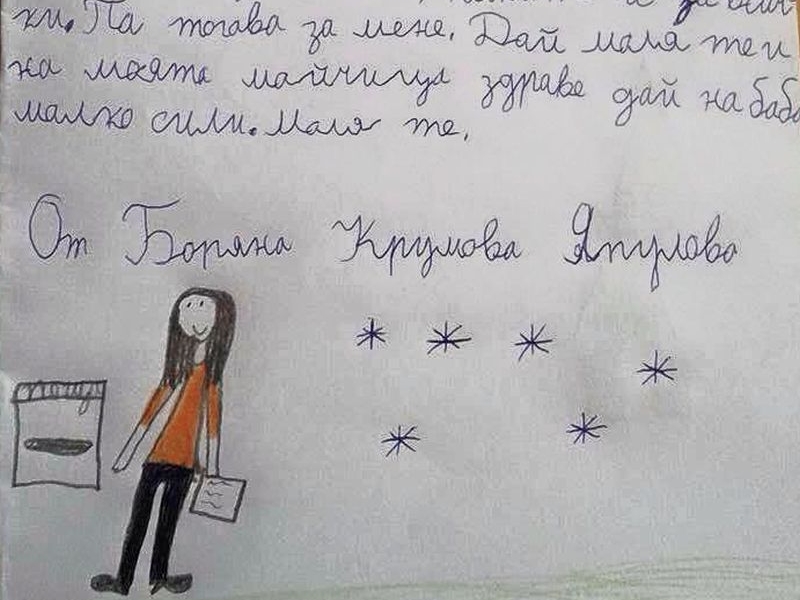 за всич-
ки. Па тогава за мене. Дай моля те и
на моята майчица здраве дай на баба
малко сили. Моля те.
От Боряна Крумова Япулова
поща